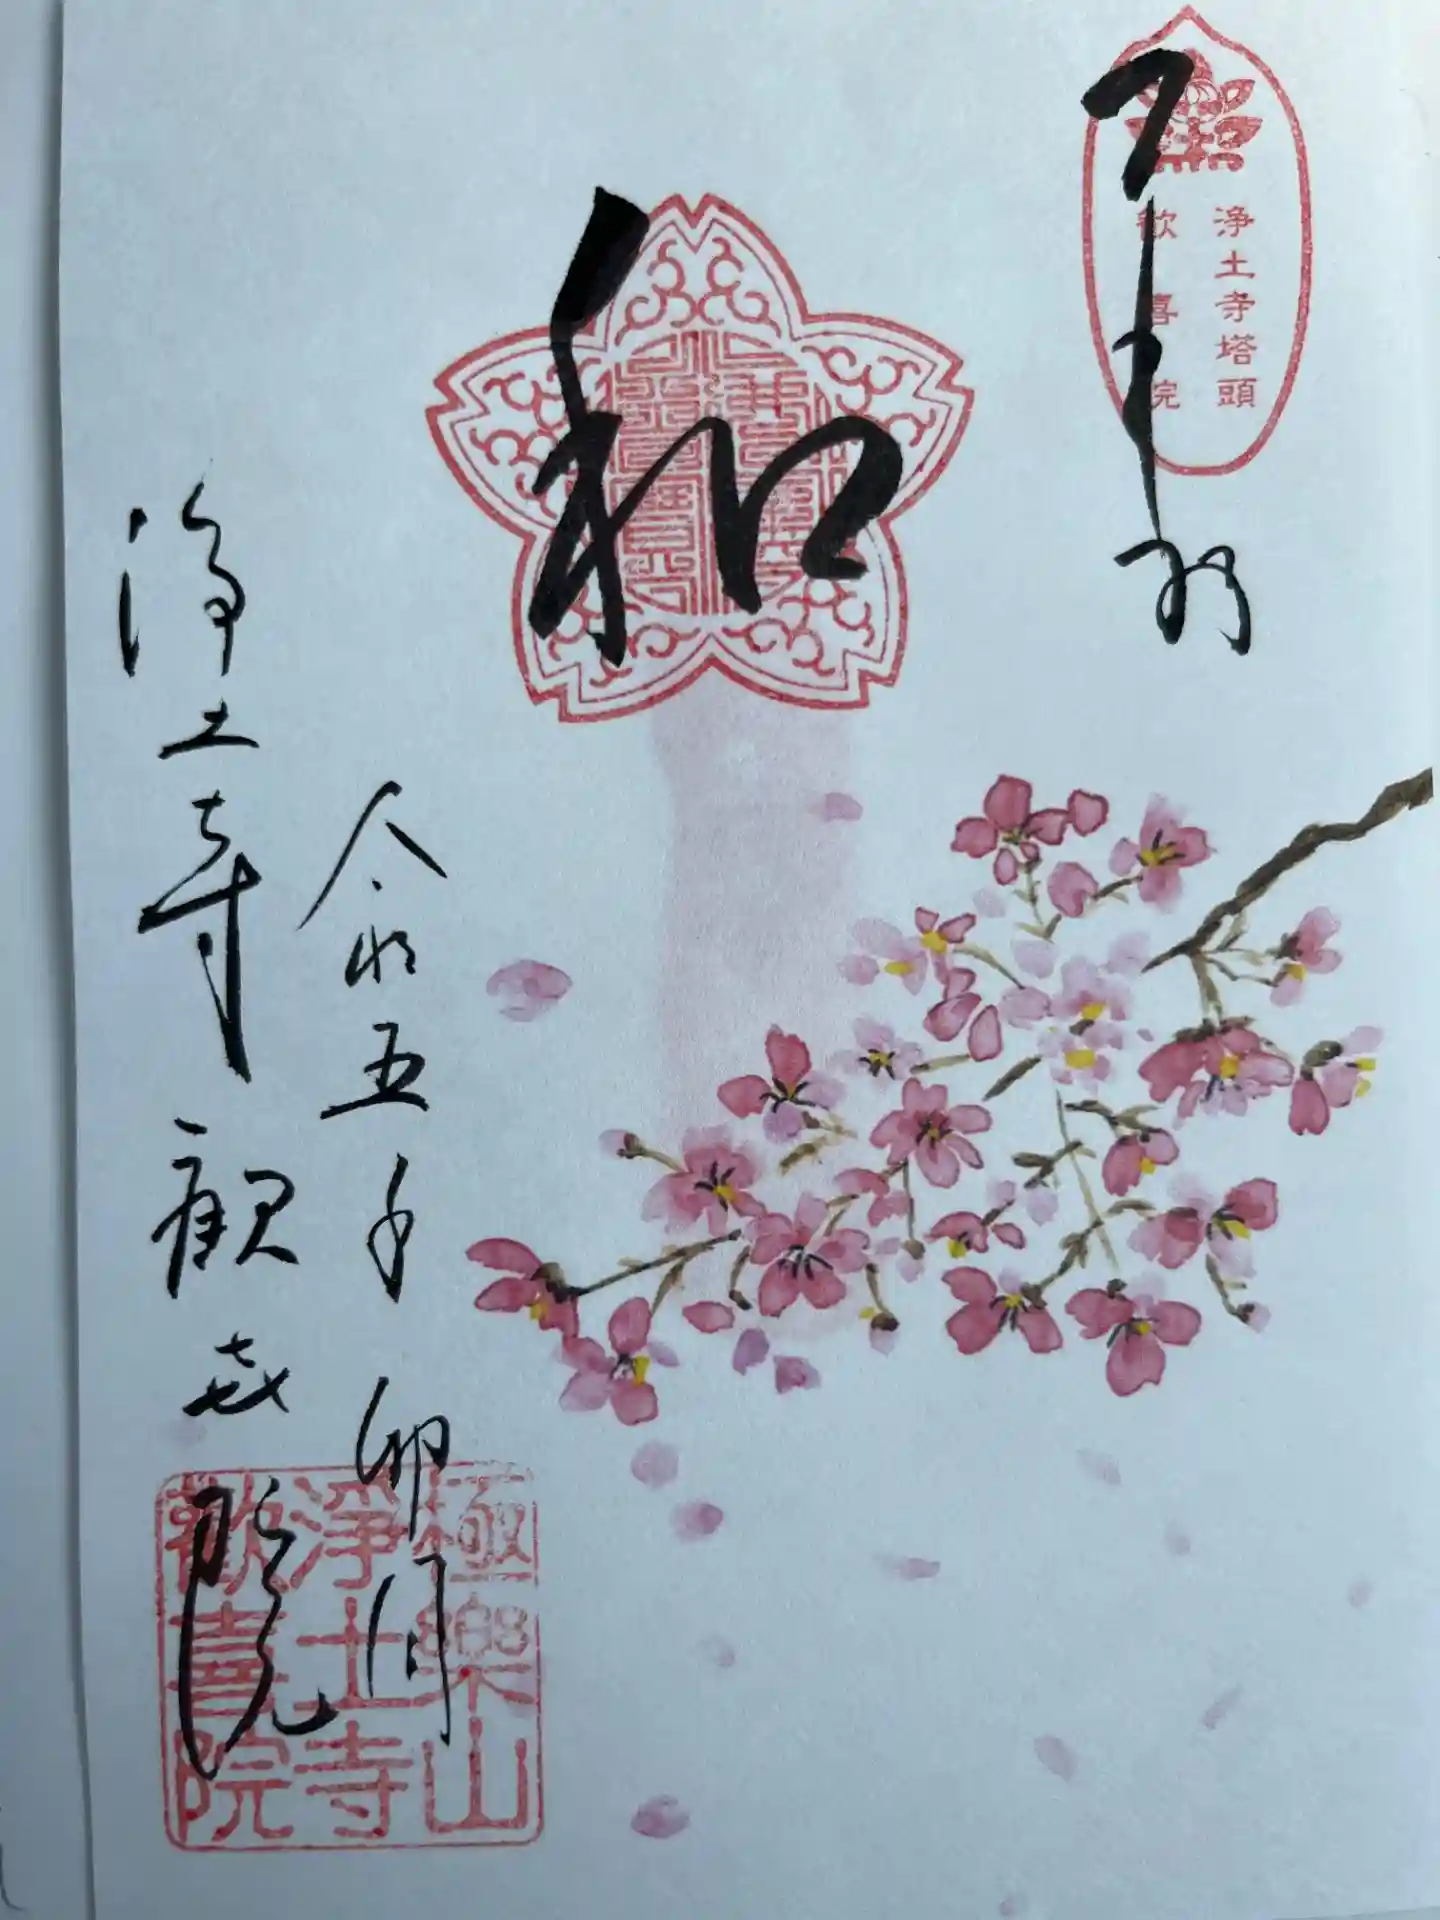 浄土寺塔頭
歓喜院
奉拝
和
令和五年 卯月
浄土寺 歓喜院
極樂山
淨土寺
歡喜院